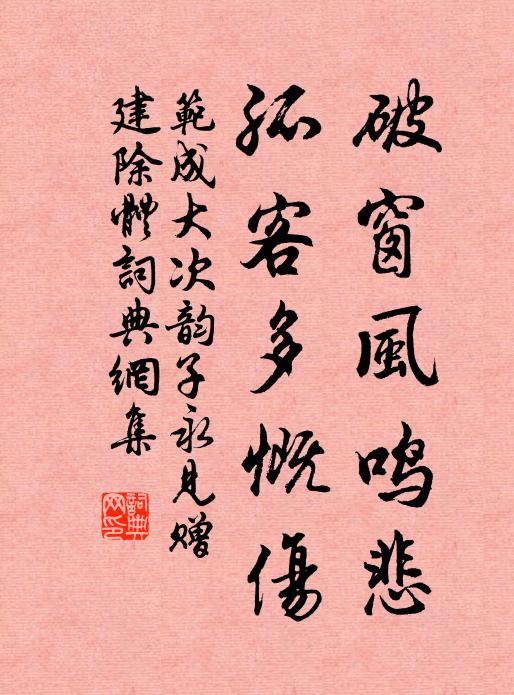 破窗風鳴悲
孤客多慨傷
範成大次韵子永見贈
建除體詞典網集
詞典網印